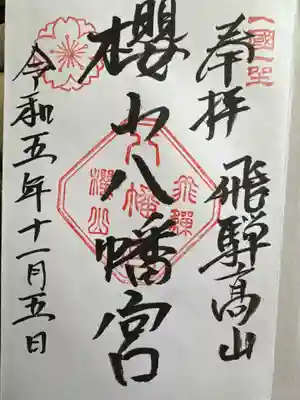 一國一社
奉拝 飛騨高山
櫻山八幡宮
飛驒
八幡
櫻山
令和五年十一月五日